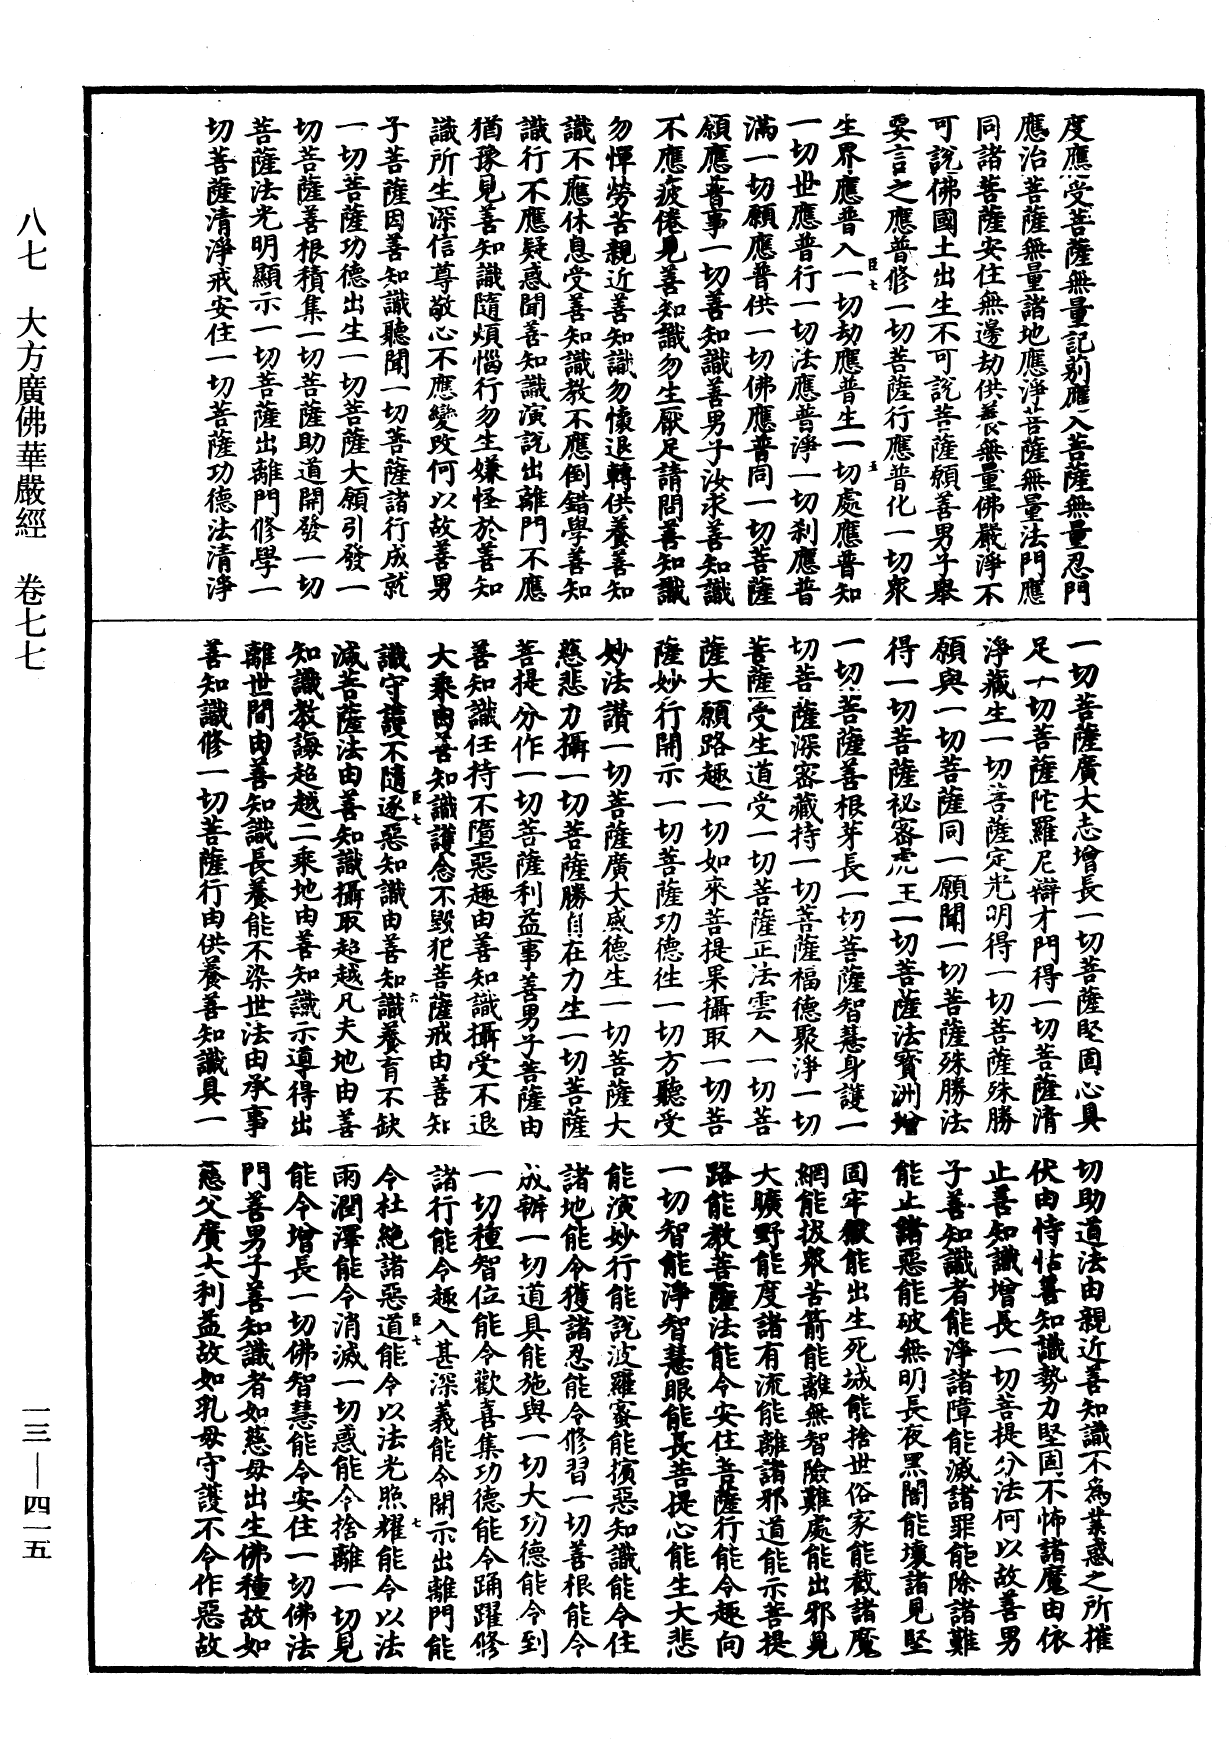 度應受菩薩無量記莂應入菩薩無量忍門
應治菩薩無量諸地應淨菩薩無量法門應
同諸菩薩安住無邊劫供養無量佛嚴淨不
可說佛國土出生不可說菩薩願善男子舉
要言之應普修一切菩薩行應普化一切衆
生界應普入一切劫應普生一切處應普知
一切世應普行一切法應普淨一切刹應普
滿一切願應普供一切佛應普同一切菩薩
願應普事一切善知識善男子汝求善知識
不應疲倦見善知識勿生厭足請問善知識
勿憚勞苦親近善知識勿懷退轉供養善知
識不應休息受善知識教不應倒錯學善知
識行不應疑惑聞善知識演說出離門不應
猶豫見善知識隨煩惱行勿生嫌怪於善知
識所生深信尊敬心不應變改何以故善男
子菩薩因善知識聽聞一切菩薩諸行成就
一切菩薩功德出生一切菩薩大願引發一
切菩薩善根積集一切菩薩助道開發一切
菩薩法光明顯示一切菩薩出離門修學一
切菩薩清淨戒安住一切菩薩功德法清淨
一切菩薩廣大志增長一切菩薩堅固心具
足一切菩薩陀羅尼辯才門得一切菩薩清
淨藏生一切菩薩定光明得一切菩薩殊勝
願與一切菩薩同一願聞一切菩薩殊勝法
得一切菩薩祕密處至一切菩薩法寶洲增
一切菩薩善根芽長一切菩薩智慧身護一
切菩薩深密藏持一切菩薩福德聚淨一切
菩薩受生道受一切菩薩正法雲入一切菩
薩大願路趣一切如來菩提果攝取一切菩
薩妙行開示一切菩薩功德徃一切方聽受
妙法讚一切菩薩廣大威德生一切菩薩大
慈悲力攝一切菩薩勝自在力生一切菩薩
菩提分作一切菩薩利益事善男子菩薩由
善知識任持不墮惡趣由善知識攝受不退
大乘由善知識護念不毀犯菩薩戒由善知
識守護不隨逐惡知識由善知識養育不缺
減菩薩法由善知識攝取超越凡夫地由善
知識教誨超越二乘地由善知識示導得出
離世間由善知識長養能不染世法由承事
善知識修一切菩薩行由供養善知識具一
切助道法由親近善知識不爲業惑之所摧
伏由恃怙善知識勢力堅固不怖諸魔由依
止善知識增長一切菩提分法何以故善男
子善知識者能淨諸障能滅諸罪能除諸難
能止諸惡能破無明長夜黑闇能壞諸見堅
固牢獄能出生死城能捨世俗家能截諸魔
網能拔衆苦箭能離無智險難處能出邪見
大曠野能度諸有流能離諸邪道能示菩提
路能教菩薩法能令安住菩薩行能令趣向
一切智能淨智慧眼能長菩提心能生大悲
能演妙行能說波羅蜜能擯惡知識能令住
諸地能令獲諸忍能令修習一切善根能令
成辦一切道具能施與一切大功德能令到
一切種智位能令歡喜集功德能令踊躍修
諸行能令趣入甚深義能令開示出離門能
令杜絶諸惡道能令以法光照耀能令以法
雨潤澤能令消滅一切惑能令捨離一切見
能令增長一切佛智慧能令安住一切佛法
門善男子善知識者如慈母出生佛種故如
慈父廣大利益故如乳母守護不令作惡故
臣七
五
臣七
六
臣七
七
八七　大方廣佛華嚴經　卷七七
一三—四一五